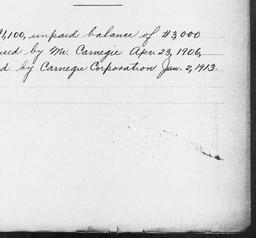 1,100, unpaid balance of $3000
ued by Mr. Carnegie Apr. 23, 1906,
d by Carnegie Corporation Jan. 2, 1913.